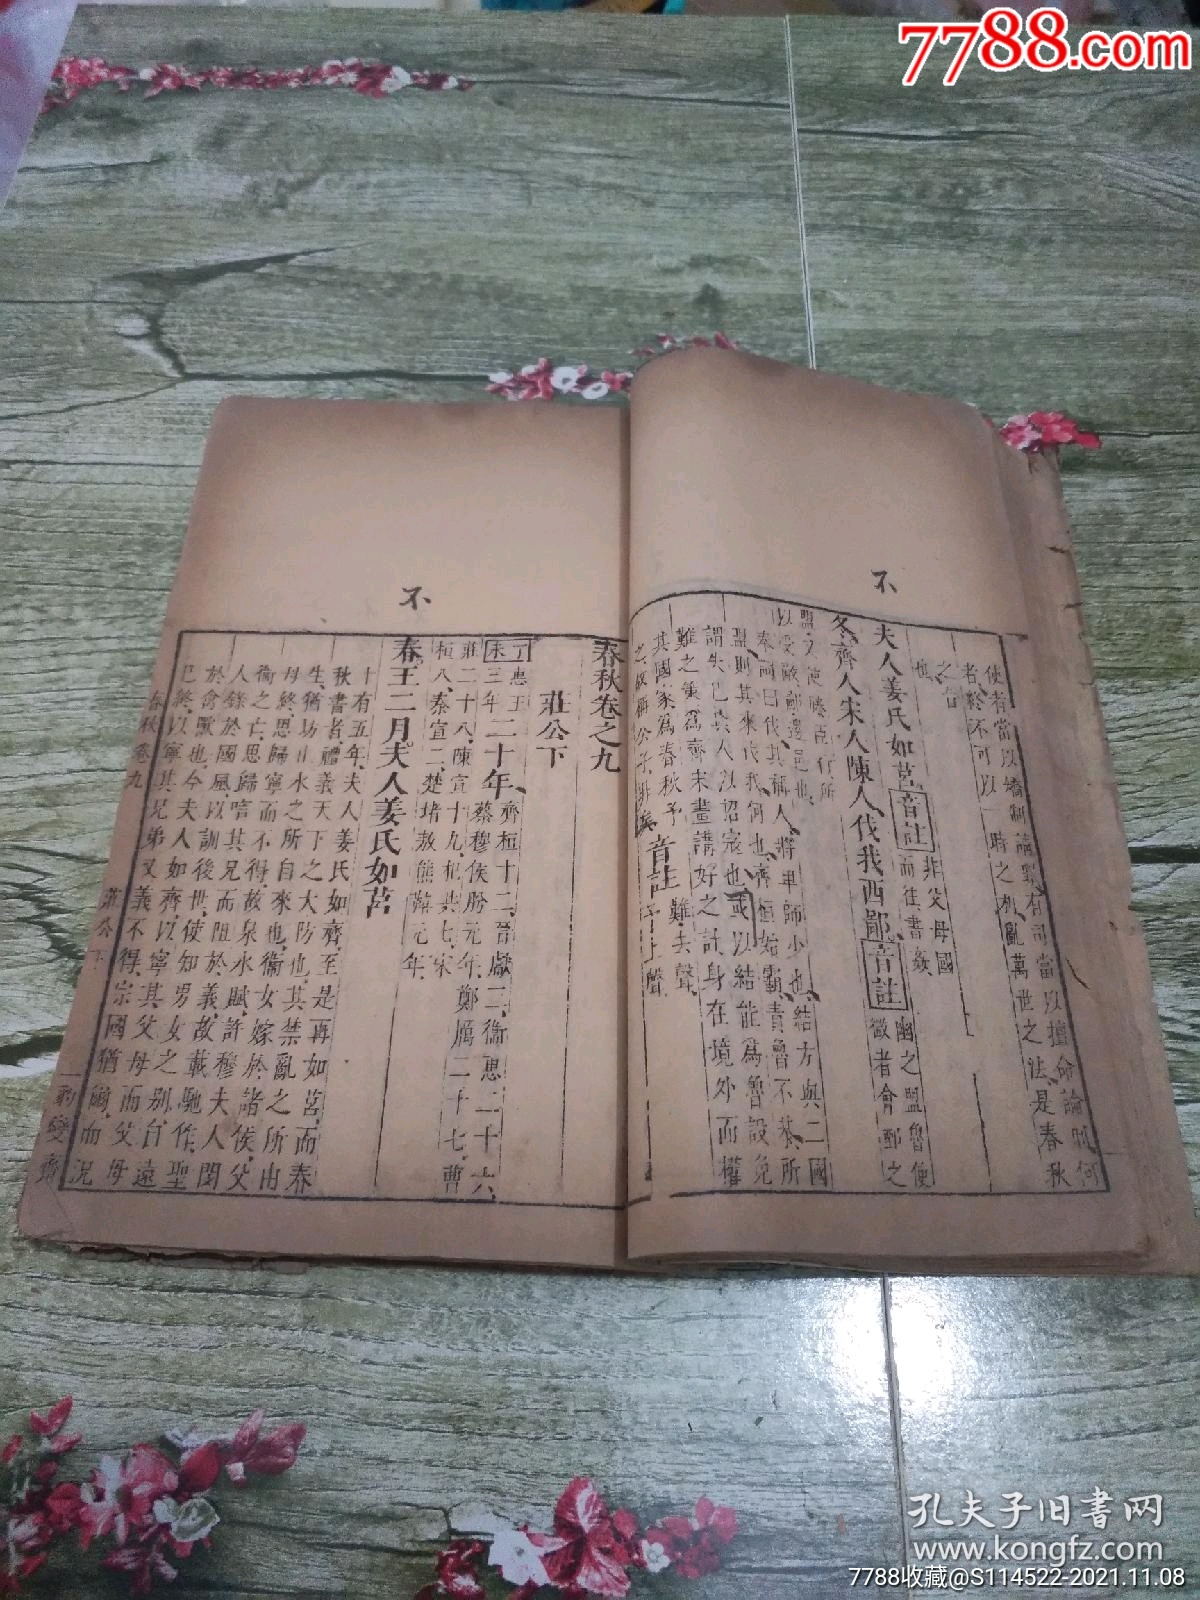 7788.com
不
使者當以矯制請罪有司當以擅命論
者終不可以一時之利亂萬世之法是春秋
之旨
也
夫人姜氏如莒音註非父母國而往書姦
冬齊人宋人陳人伐我西鄙音註幽之盟魯使微者會鄄之
盟又使媵臣行所
以受敵鄙邊邑也
奉詞曰伐其稱人將卑師少也結方與二國
盟則其來伐我何也齊桓始霸責魯不恭所
謂失己與人以招寇也或以結能為魯設免
難之策為齊宋畫講好之計身在境外而權
其國家為春秋予
音註予上聲難去聲
春秋卷之九
莊公下
丁未惠王三年二十年齊桓十二晉獻二衞惠二十六
蔡穆侯肹元年鄭厲二十七曹
莊二十八陳宣十九杞共七宋
桓八秦宣二楚堵敖熊囏元年
不
春王二月夫人姜氏如莒
十有五年夫人姜氏如齊至是再如莒而春
秋書者禮義天下之大防也其禁亂之所由
生猶坊止水之所自來也衞女嫁於諸侯父
母終思歸寧而不得故泉水賦許穆夫人閔
衞之亡思歸唁其兄而阻於義故載馳作聖
人錄於國風以訓後世使知男女之別自遠
於禽獸也今夫人如齊以寧其父母而父母
已終以寧其兄弟又義不得宗國猶爾而況
春秋卷九
莊公下
一
豹變齋
孔夫子旧書网
www.kongfz.com
7788收藏@S114522-2021.11.08